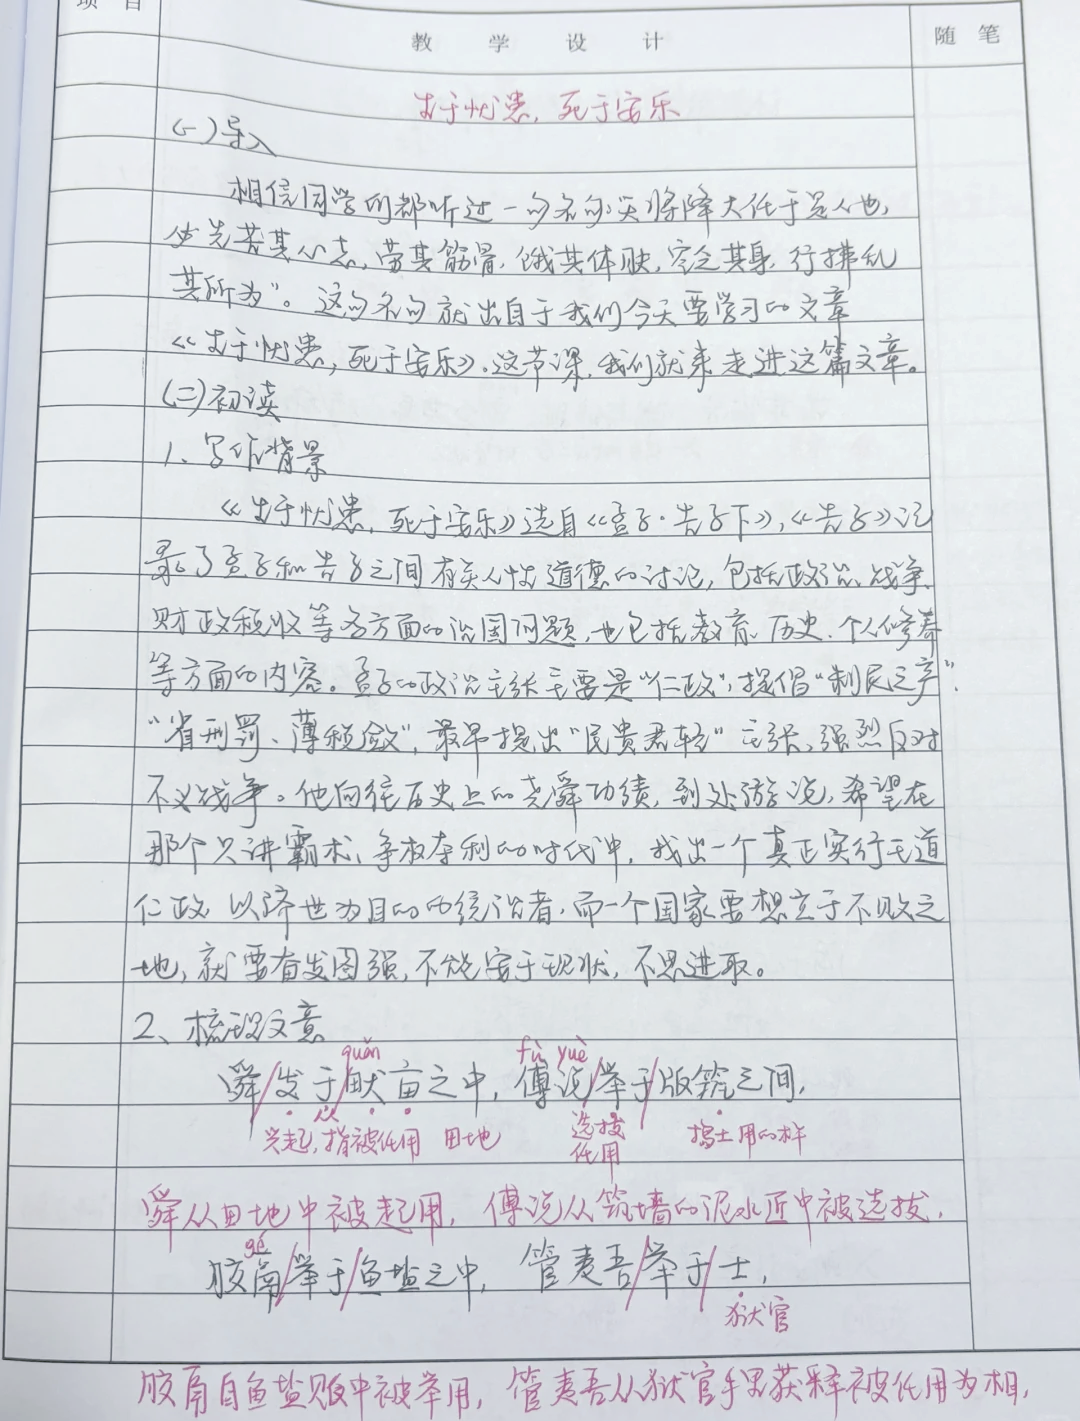 项 目
教 学 设 计
随 笔
生于忧患,死于安乐
(一)导入
相信同学们都听过一句名句:天将降大任于是人也,
必先苦其心志,劳其筋骨,饿其体肤,空乏其身,行拂乱
其所为"。这句名句就出自于我们今天要学习的文章
《生于忧患,死于安乐》。这节课,我们就来走进这篇文章。
(二)初读
1、写作背景
《生于忧患,死于安乐》选自《孟子·告子下》,《告子》记
录了孟子和告子之间有关人性道德的讨论,包括政治、战争、
财政税收等各方面的治国问题,也包括教育、历史、个人修养
等方面的内容。孟子的政治主张主要是"仁政",提倡"制民之产"、
"省刑罚、薄税敛",最早提出"民贵君轻"主张,强烈反对
不义战争。他向往历史上的尧舜功绩,到处游说,希望在
那个只讲霸术、争权夺利的时代中,找出一个真正实行王道
仁政,以济世为目的的统治者,而一个国家要想立于不败之
地,就要奋发图强,不能安于现状,不思进取。
2、梳理文意
quǎn fù yuè
舜/发于/畎亩之中,傅说/举于/版筑之间,
兴起,指被任用 从 田地 选拔任用 捣土用的杵
舜从田地中被起用,傅说从筑墙的泥水匠中被选拔,
gé
胶鬲/举于/鱼盐之中,管夷吾/举于/士,
狱官
胶鬲自鱼盐贩中被举用,管夷吾从狱官手里获释被任用为相,